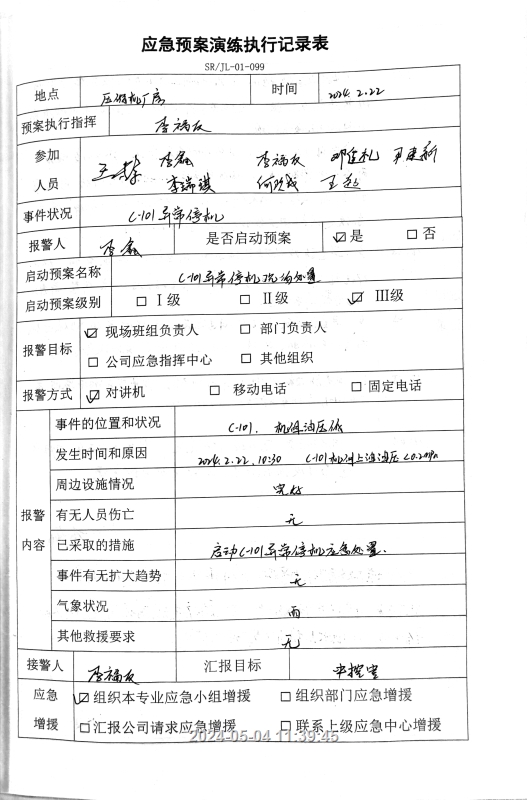 应急预案演练执行记录表
SR/JL-01-099
地点 压缩机厂房 时间 2024.2.22
预案执行指挥 李福友
参加人员 李鑫 李福友
李瑞琪
事件状况 C-101异常停机
报警人 李鑫 是否启动预案 ☑是 □否
启动预案名称 C-101异常停机应急处置
启动预案级别 □ I级 □ II级 ☑ III级
报警目标 ☑ 现场班组负责人 □ 部门负责人
□ 公司应急指挥中心 □ 其他组织
报警方式 ☑ 对讲机 □ 移动电话 □ 固定电话
报警内容
事件的位置和状况 C-101. 机组油压低
发生时间和原因 2024.2.22, 10:30 C-101机 油压<0.2MPa
周边设施情况 完好
有无人员伤亡 无
已采取的措施 启动C-101异常停机应急处置.
事件有无扩大趋势 无
气象状况 雨
其他救援要求 无
接警人 李福友 汇报目标 中控室
应急增援 ☑组织本专业应急小组增援 □组织部门应急增援
□汇报公司请求应急增援 □联系上级应急中心增援
2024-05-04 11:39:45